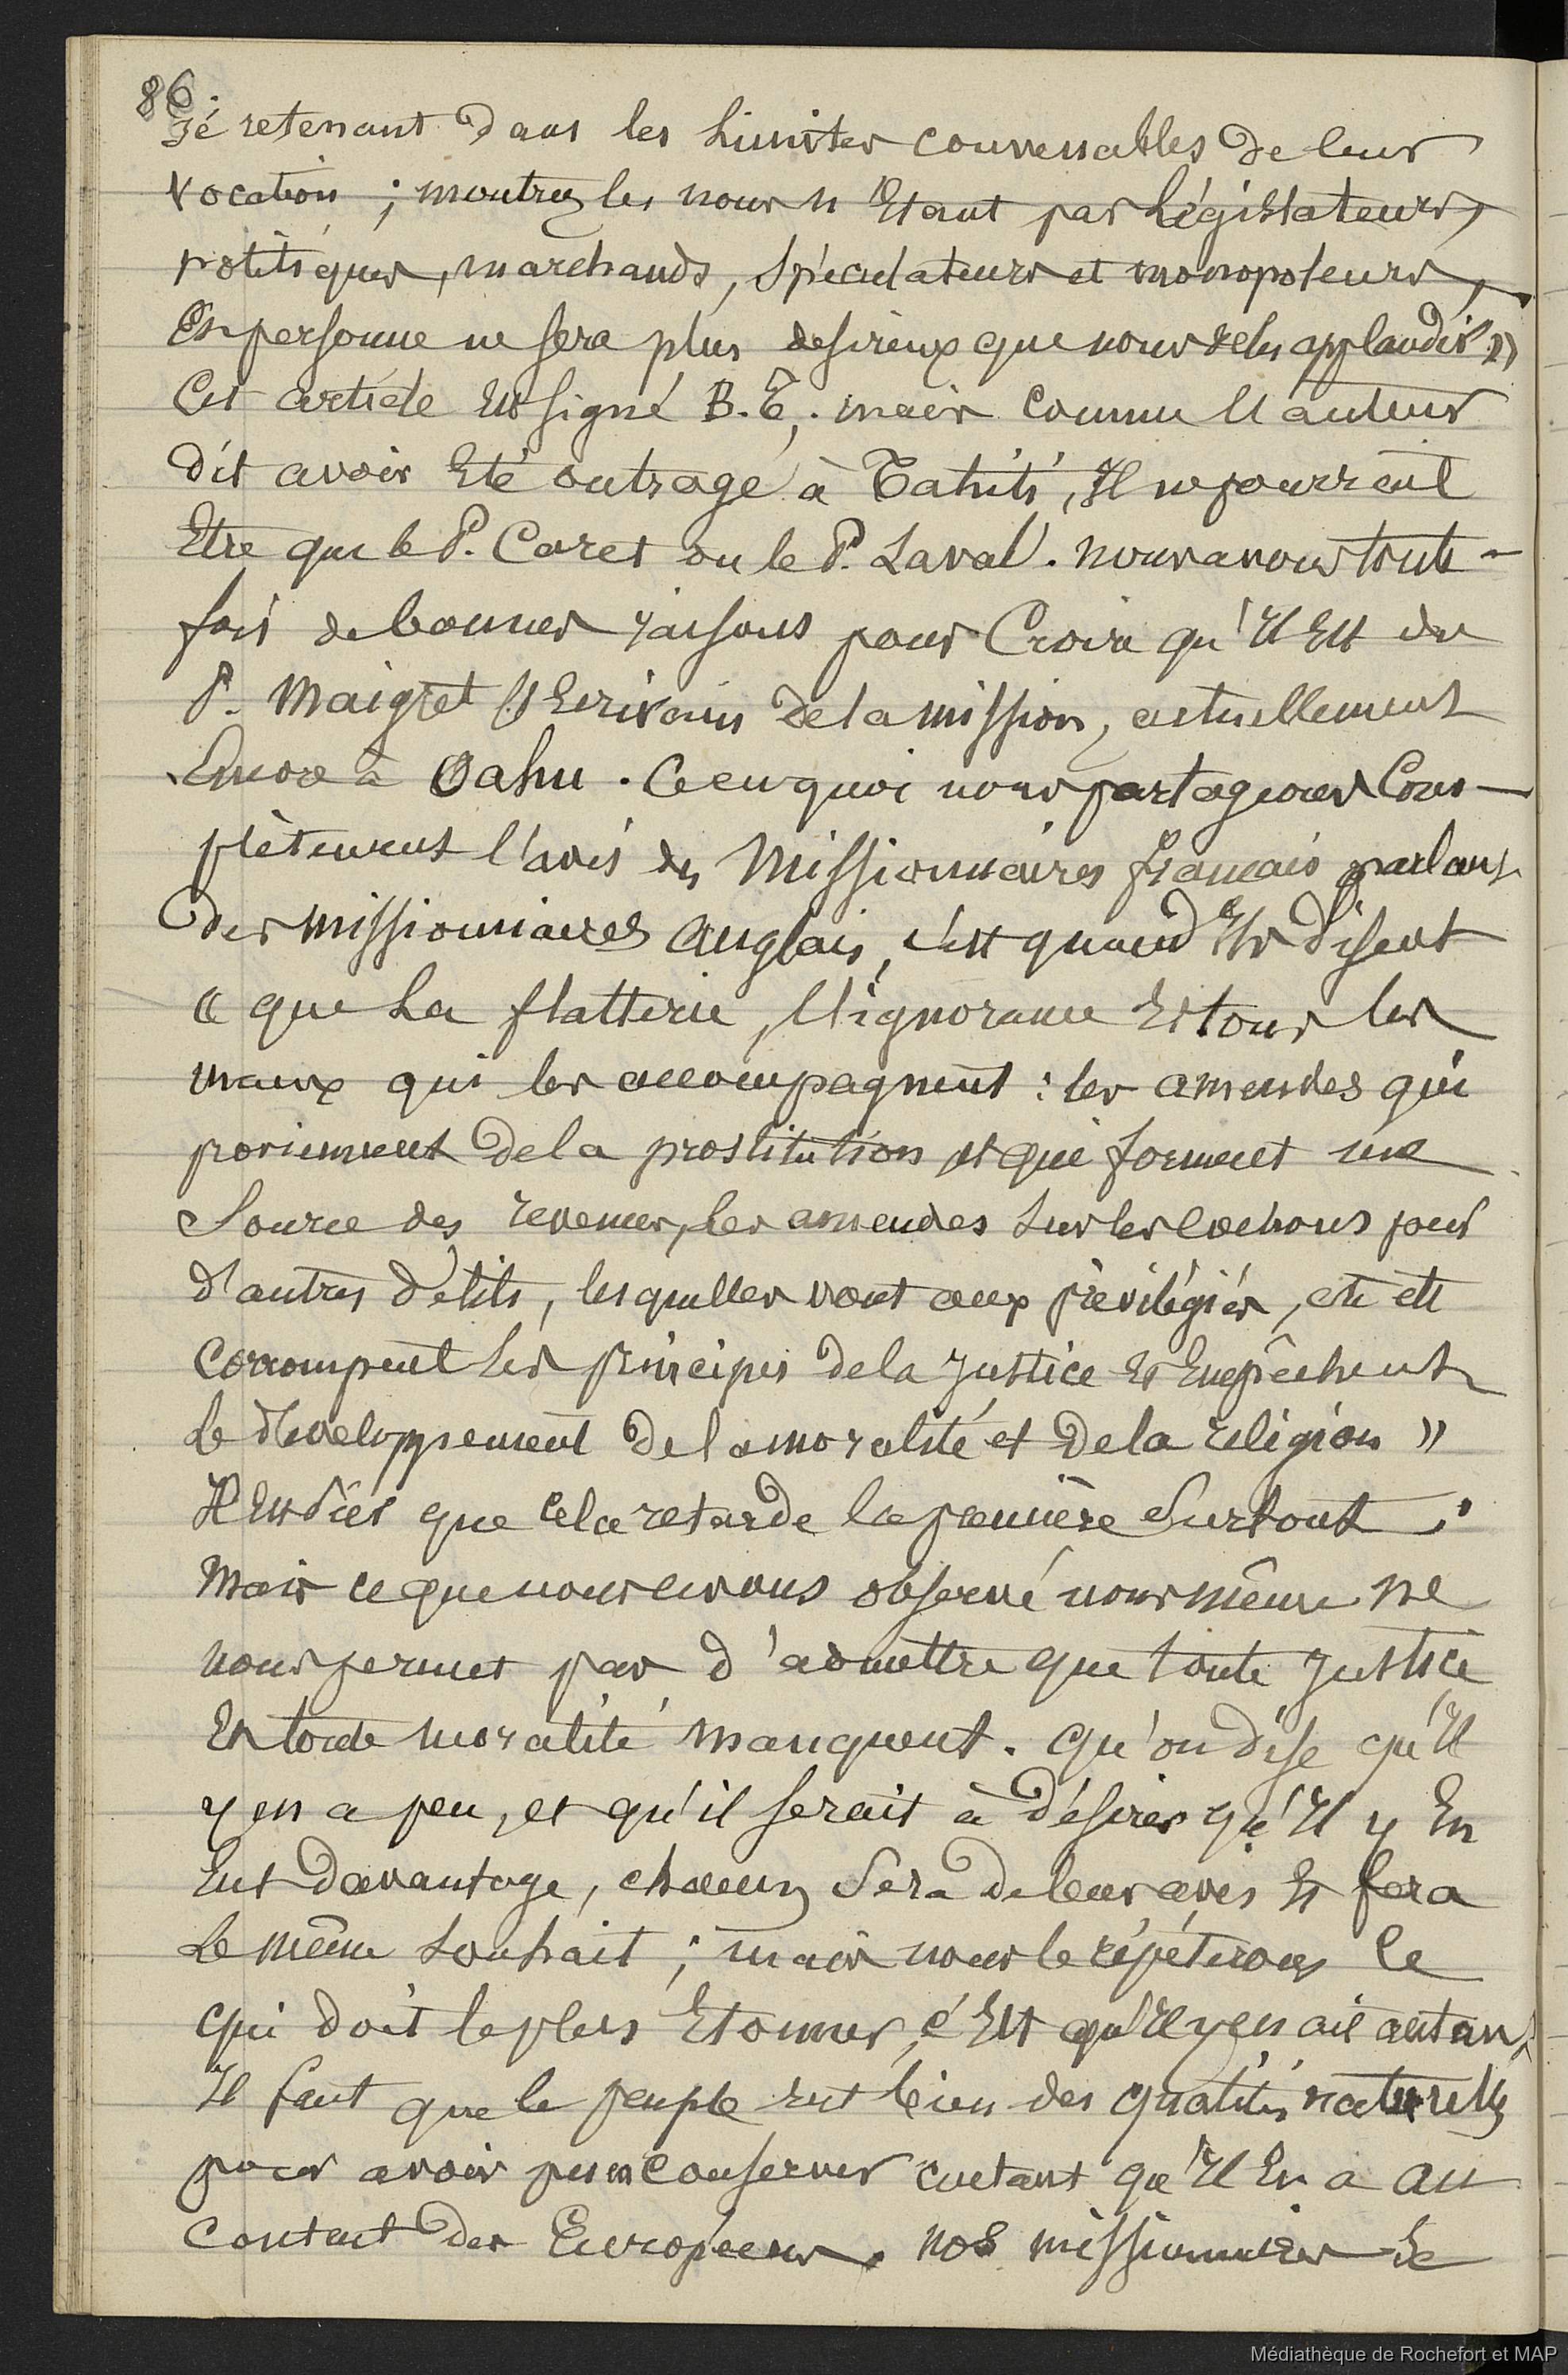 86.
sé retenant dans les Limites convenables de leur
vocation ; montrez les nous n Etant pas Législateurs,
politiques, marchands, spéculateurs et monopoleurs,
Et personne ne sera plus desireux que nous de les applaudir »
Cet article Est signé B. E,. mais comme l'auteur
dit avoir Eté outragé à Tahiti, Il ne pourrait
Etre que le P. Caret ou le P. Laval. nous avons toute-
fois de bonnes raisons pour Croire qu'Il Est du
P. Maigret l'Ecrivain de la mission, actuellement
Encore à Oahu. Ce en quoi nous partageons Com-
plètement l'avis des Missionnaires français parlant
des missionnaires anglais, c'est quand Ils disent
« que La flatterie, l'ignorance Et tous les
maux qui les accompagnent : les amendes qui
proviennent de la prostitution et qui forment une
Source des revenus, les amendes sur les cochons pour
d'autres délits, lesquelles vont aux privilégiés, etc etc
Corrompent Les principes de la justice Et Empêchent
Le développement de la moralité et de la religion »
Il Est sûr que cela retarde la première Surtout ;
Mais ce que nous avons observé nous même ne
nous permet pas d'admettre que toute justice
Et toute moralité manquent. Qu'on dise qu'Il
y en a peu, et qu'il serait à désirer qu'Il y En
Eut davantage, chacun Sera de leur avis Et fera
Le même Souhait ; mais nous le répéterons Ce
qui doit le plus Etonner, c'Est qu'Il y en ait autant
Il faut que le peuple eut bien des qualités naturelles
pour avoir pu en conserver autant qu'Il En a au
Contact des Européens. Nos missionnaires se
Médiathèque de Rochefort et MAP